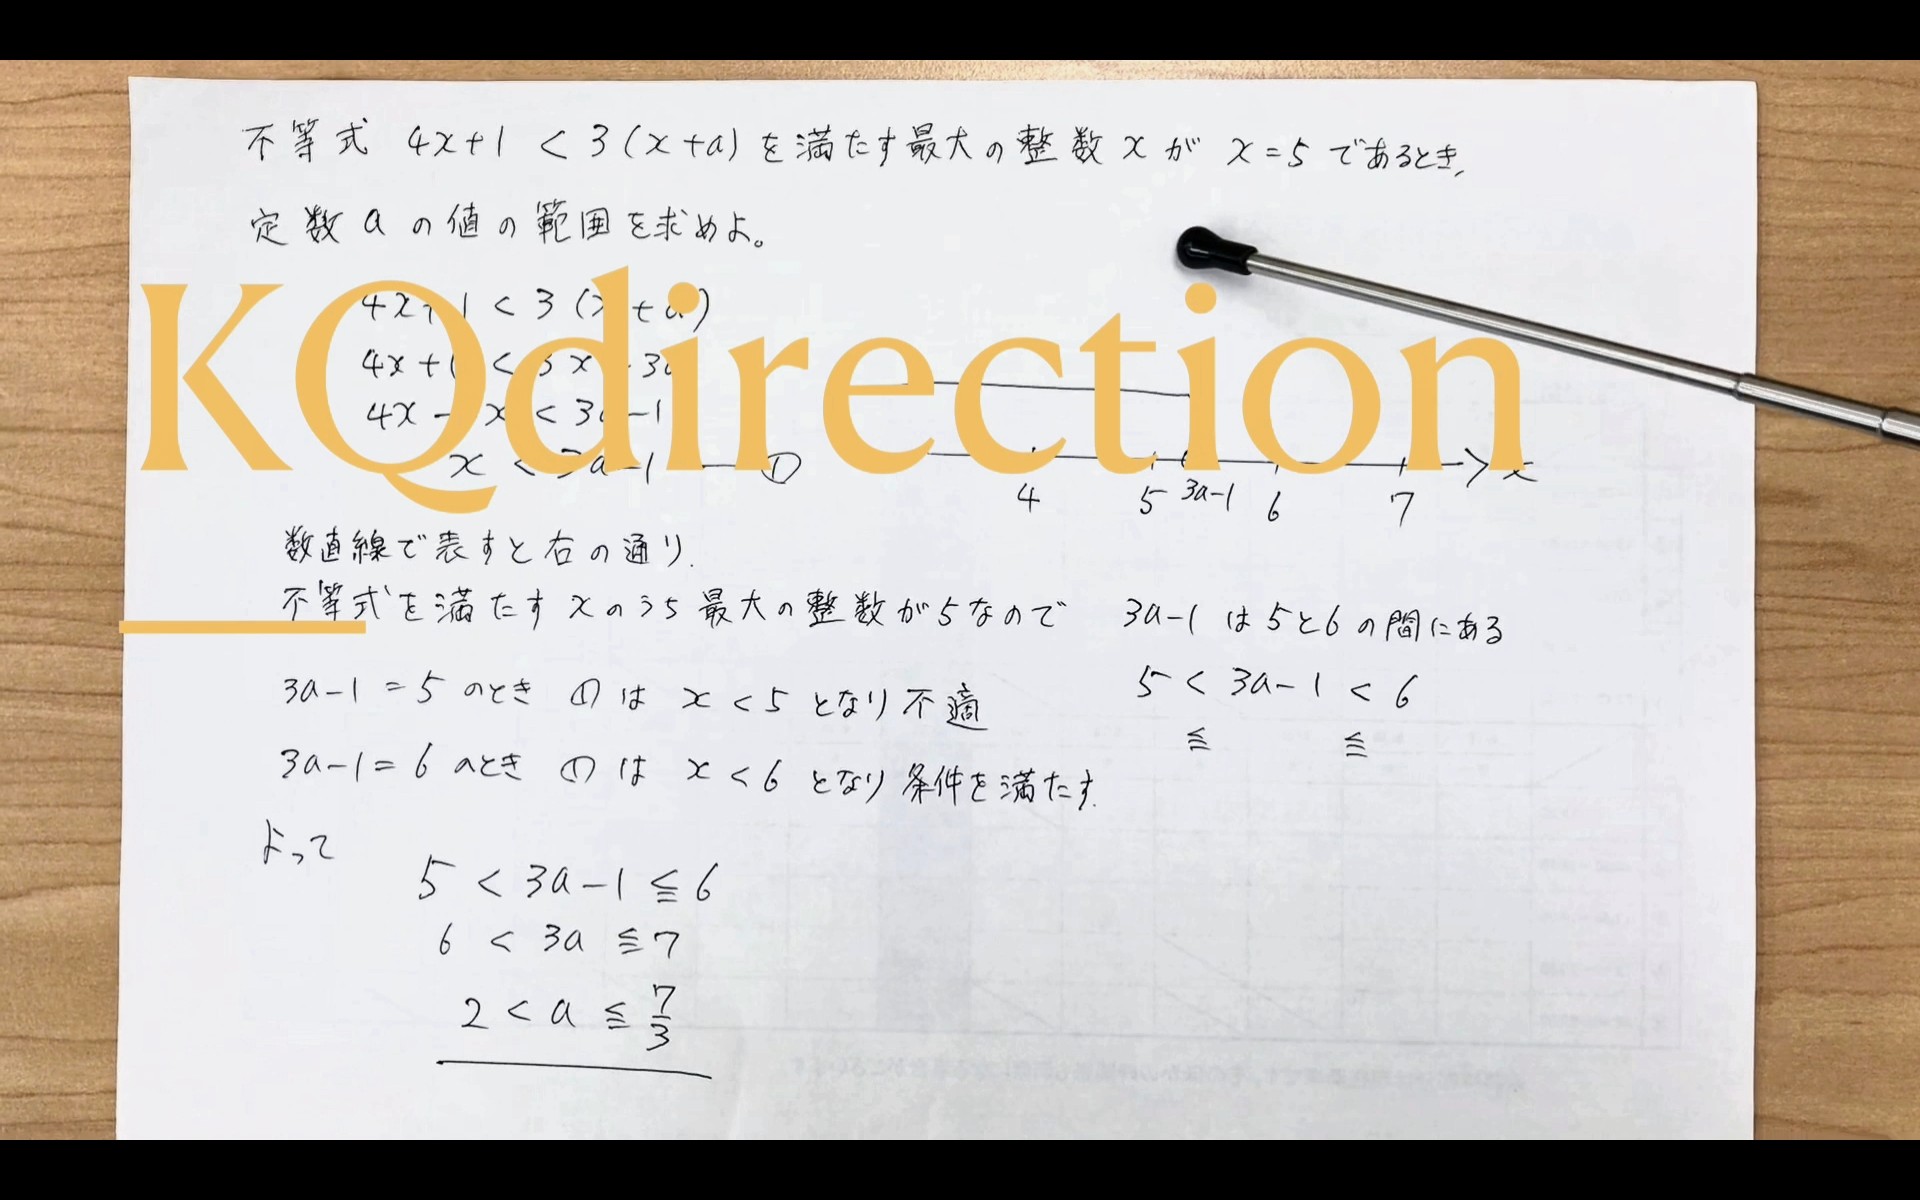 不等式 4x+1 < 3(x+a) を満たす最大の整数 x が x=5 であるとき,
定数 a の値の範囲を求めよ。
KQdirection
4x+1 < 3(x+a)
4x+1 < 3x+3a
4x-3x < 3a-1
x < 3a-1 — ①
4 5 3a-1 6 7 x
数直線で表すと右の通り.
不等式を満たす x のうち最大の整数が5なので 3a-1 は5と6の間にある
5 < 3a-1 < 6
≦ ≦
3a-1=5 のとき ①は x<5 となり不適
3a-1=6 のとき ①は x<6 となり条件を満たす.
よって
5 < 3a-1 ≦ 6
6 < 3a ≦ 7
2 < a ≦ 7/3